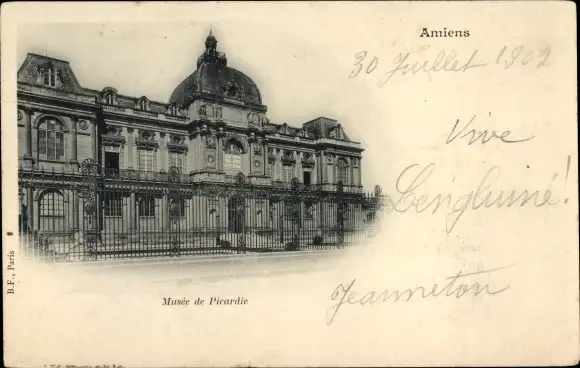 Amiens
30 Juillet 1902
Vive
Lenglumé!
Jeanneton
Musée de Picardie
B.F., Paris